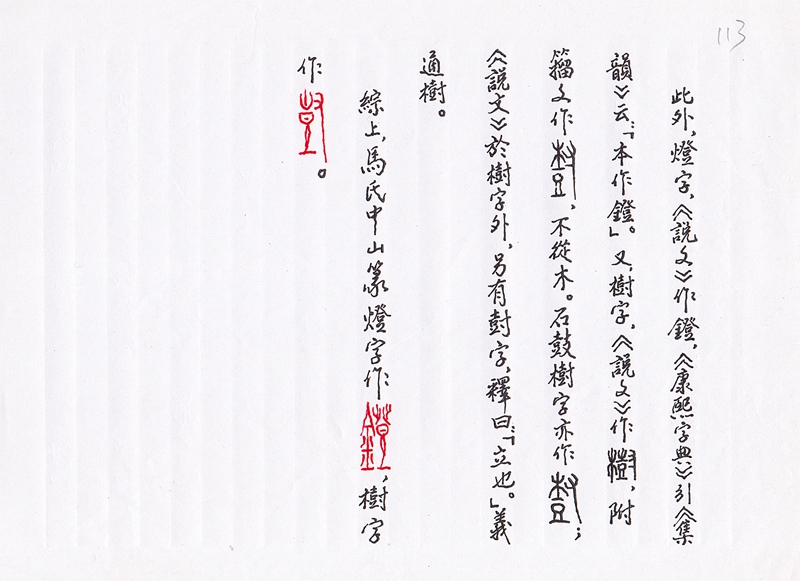 113
此外，燈字，《說文》作鐙，《康熙字典》引《集
韻》云：「本作鐙」。又，樹字，《說文》作樹，附
籀文作尌，不從木。石鼓樹字亦作尌；
《說文》於樹字外，另有尌字，釋曰：「立也。」義
通樹。
綜上，馬氏中山篆燈字作鐙，樹字
作尌。